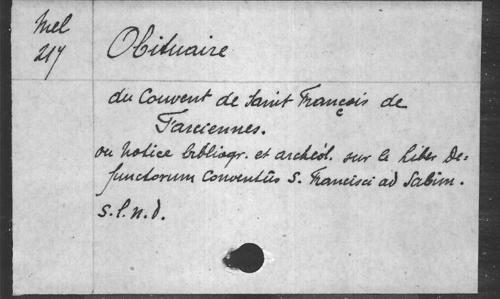 Mel
217
Obituaire
du Couvent de Saint François de
Farciennes.
ou Notice bibliogr. et archéol. sur le Liber De-
functorum Conventûs S. Francisci ad Sabim.
s.l.n.d.